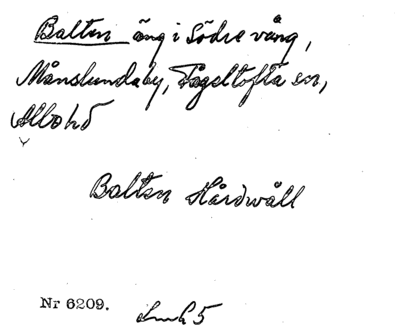 Balten äng i Södre vång,
Månslundaby, Fågeltofta sn,
Albo hd
Balten Hårdwåll
Nr 6209.